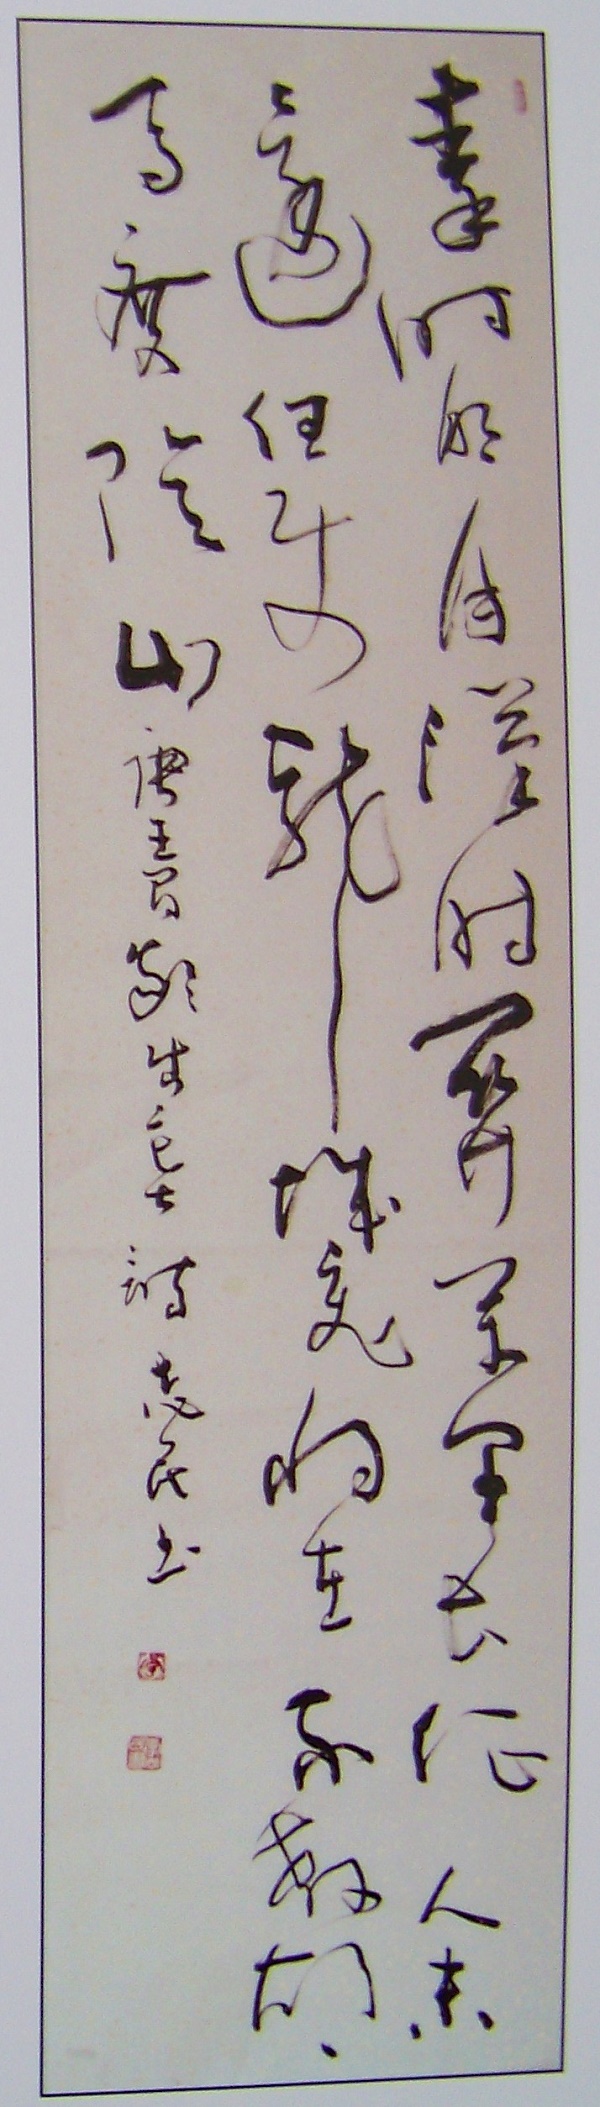 秦時明月漢時關萬里長征人未
還但使龍城飛將在不教胡
馬度陰山 唐王昌齡出塞詩 志民书